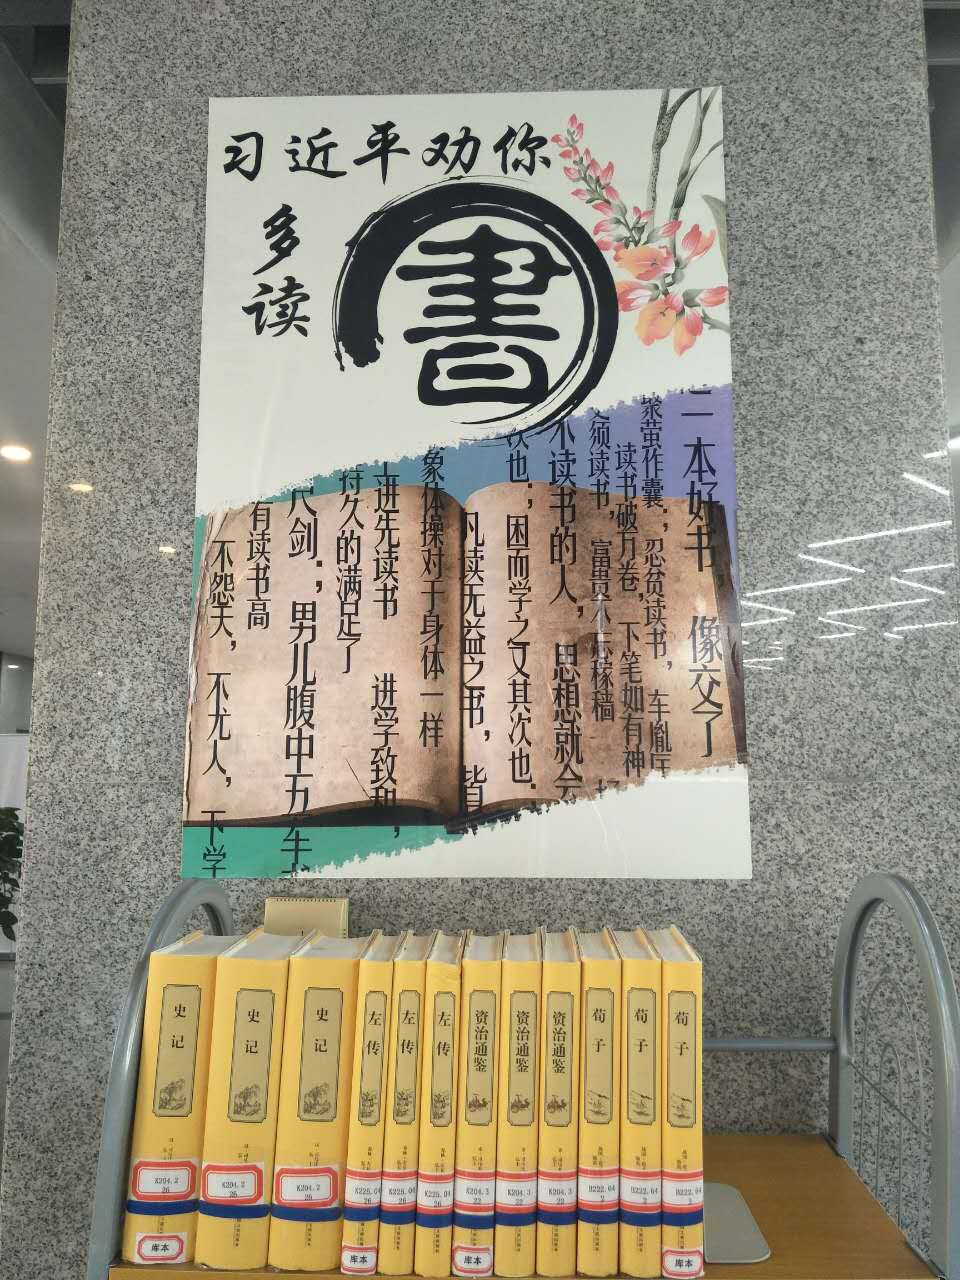 习近平劝你
多读
書
一本好书，像交了
囊萤作囊；忍贫读书，车胤
读书破万卷，下笔如有神
须读书，富贵不忘稼穑
不读书的人，思想就会
次也；困而学之又其次也；
凡读无益之书，皆
象体操对于身体一样
进先读书 进学致和，
持久的满足了
尺剑；男儿腹中五车书
有读书高
不怨天，不尤人，下学
史记
史记
史记
左传
左传
左传
资治通鉴
资治通鉴
资治通鉴
荀子
荀子
荀子
K204.2
26
K204.2
26
K204.2
26
K225.04
26
K225.04
26
K225.04
26
K204.3
22
K204.3
22
K204.3
22
B222.64
B222.64
B222.64
库本
库本
库本
库本